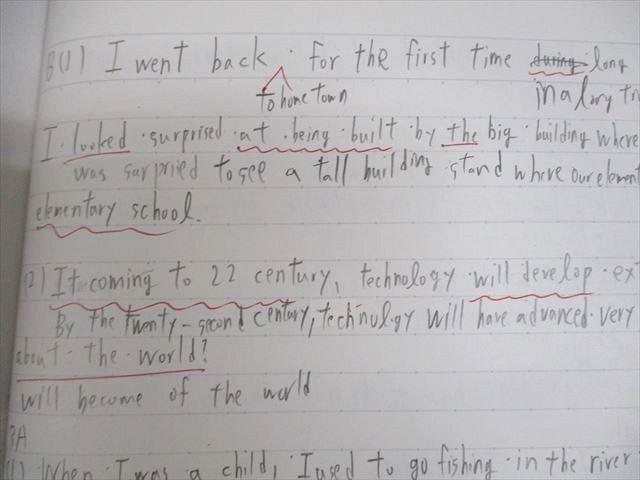 B(1) I went back · for the first time during long
to home town
in a long
I · looked · surprised · at · being · built · by the big · building where
was surpried to see a tall building stand where our element
elementary school.
(2) It coming to 22 century, technology · will develop · ex
By the twenty-second century, technology will have advanced · very
about · the · world?
will become of the world
3A
(1) When I was a child, I used to go fishing · in the river